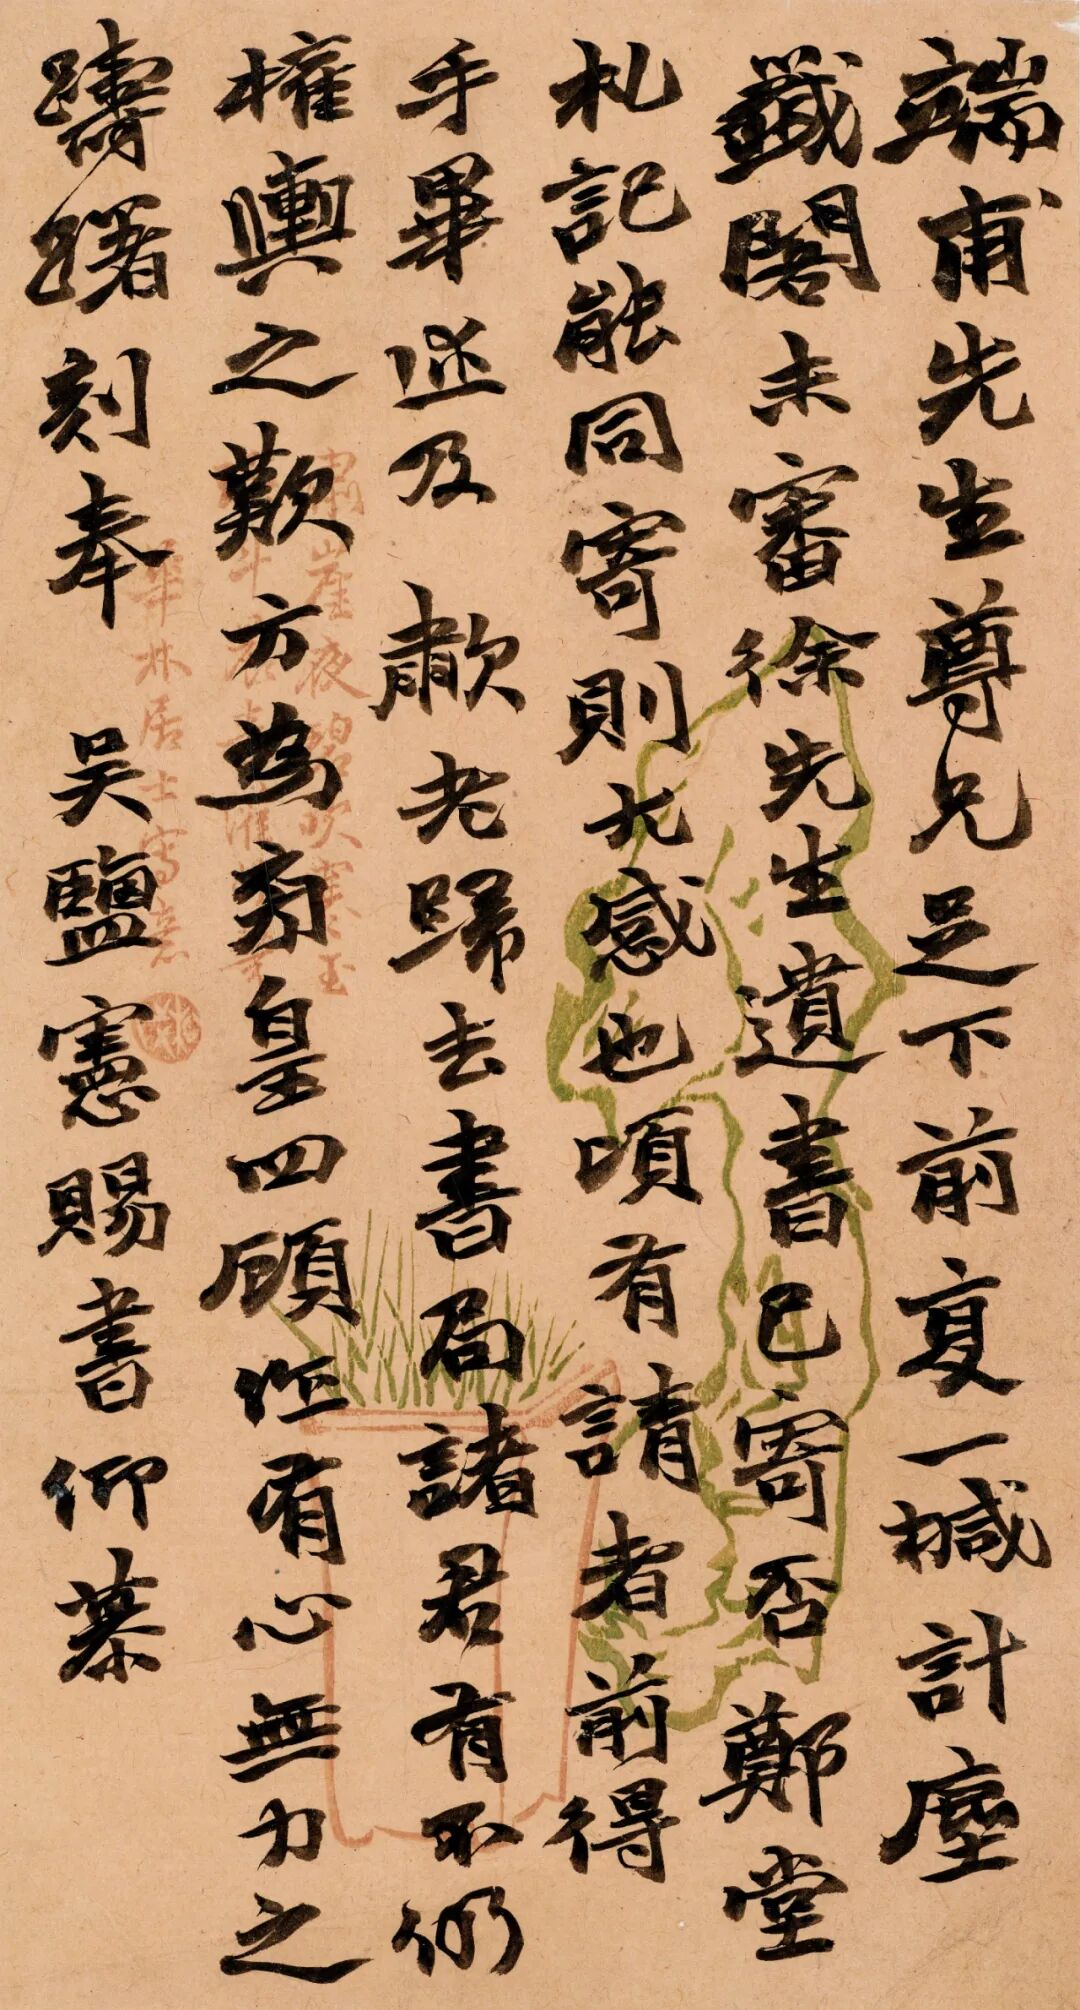 端甫先生尊兄足下前夏一椷計塵
籖閣未審徐先生遺書已寄否鄭堂
札記能同寄則尤感也頃有請者前得
手畢並及 歗老歸去書局諸君有不仍
權輿之歎方為旁皇四顧作有心無力之
躊躇刻奉 吳鹽憲賜書仰慕
華林居士寫意